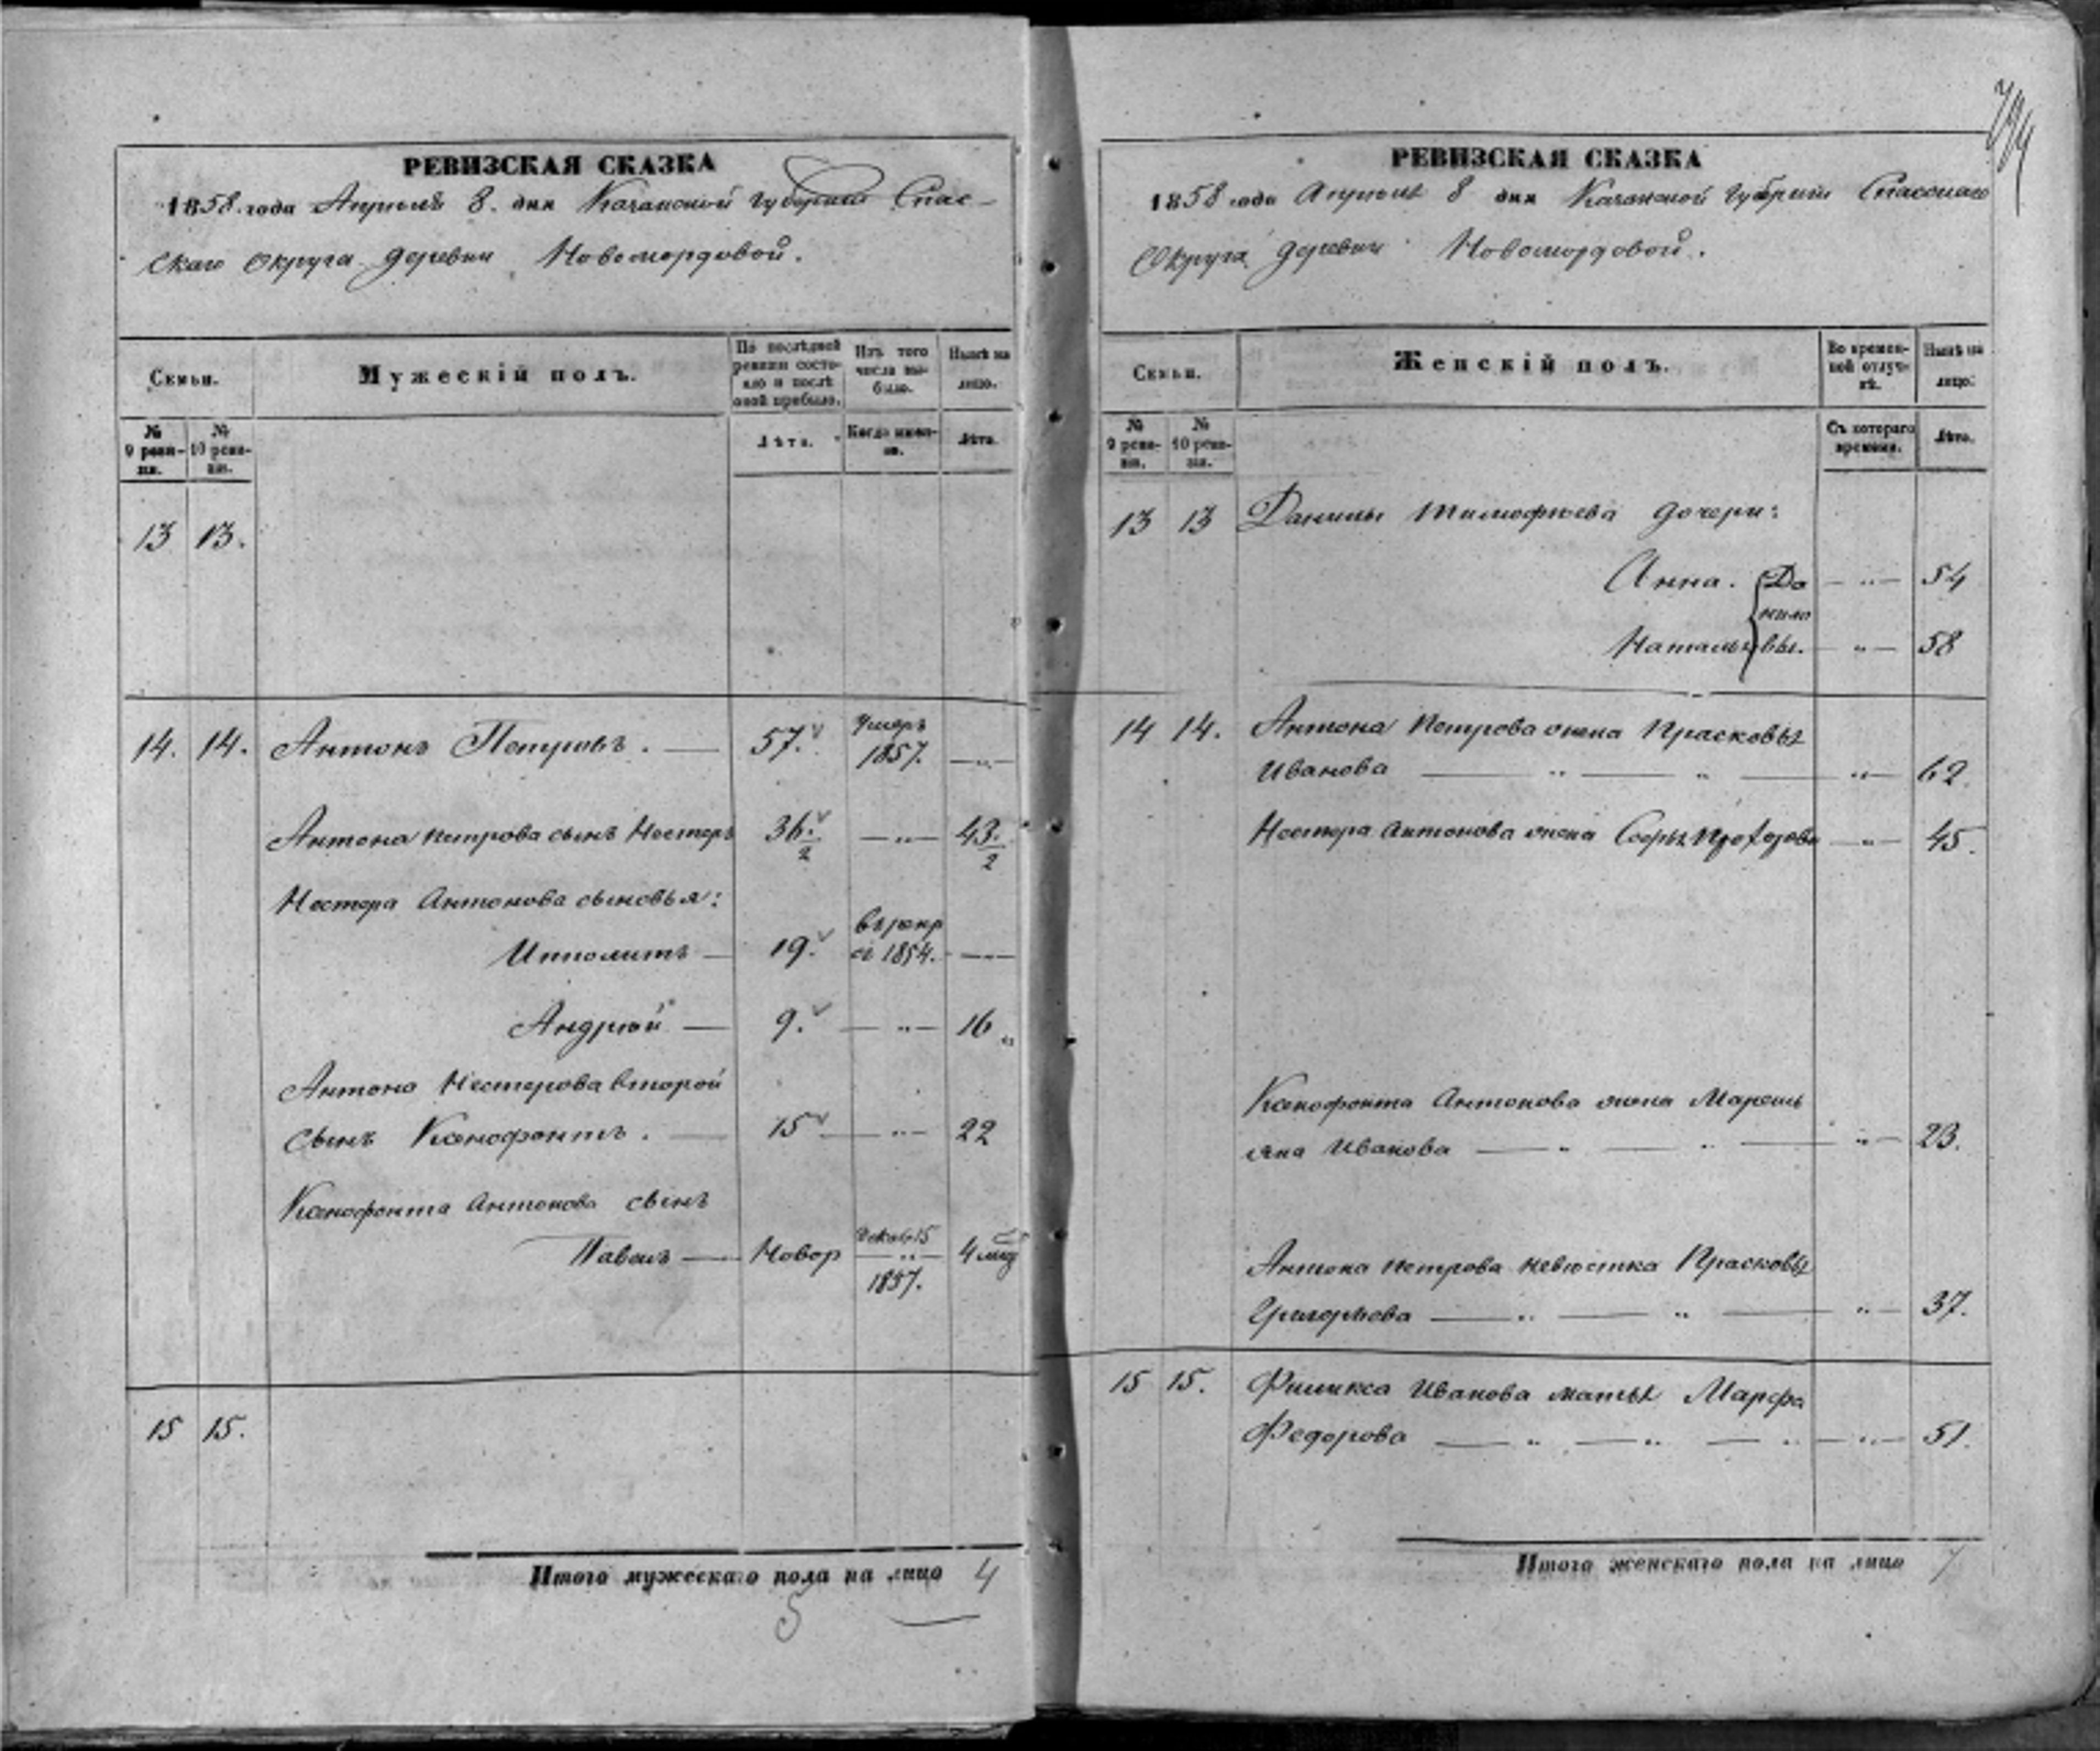 РЕВИЗСКАЯ СКАЗКА
1858 года Апрѣля 8 дня Казанской губерніи Спас-
скаго Округа деревни Новомордовой.
Семьи.
Мужескій полъ.
По послѣдней ревизіи состояло и послѣ оной прибыло.
Изъ того числа выбыло.
Нынѣ на лицо.
№ 9 ревизіи.
№ 10 ревизіи.
Лѣта.
Когда именно.
Лѣта.
13 13.
14. 14. Антонъ Петровъ. 57. умеръ 1857.
Антона Петрова сынъ Нестеръ 36. 2 43. 2
Нестера Антонова сыновья:
Ипполитъ 19. въ рекр 1854.
Андрей 9. 16
Антона Нестерова второй
сынъ Ксенофонтъ. 15 22
Ксенофонта Антонова сынъ
Павелъ Новор 15 1857. 4 мѣс
15 15.
Итого мужескаго пола на лицо 4
5
РЕВИЗСКАЯ СКАЗКА
1858 года Апрѣля 8 дня Казанской губерніи Спасскаго
Округа деревни Новомордовой.
Семьи.
Женскій полъ.
Во временной отлучкѣ.
Нынѣ на лицо:
№ 9 ревизіи.
№ 10 ревизіи.
Съ котораго времени.
Лѣта.
13 13 Данилы Тимофѣева дочери:
Анна. Данило 54
Наталья вы. 58
14 14. Антона Петрова жена Прасковья
Иванова 62.
Нестера Антонова жена 45.
Ксенофонта Антонова жена
Иванова 23.
Антона Петрова невѣстка Прасковья
Григорьева 37.
15 15. Иванова мать Марфа
Федорова 51.
Итого женскаго пола на лицо 7